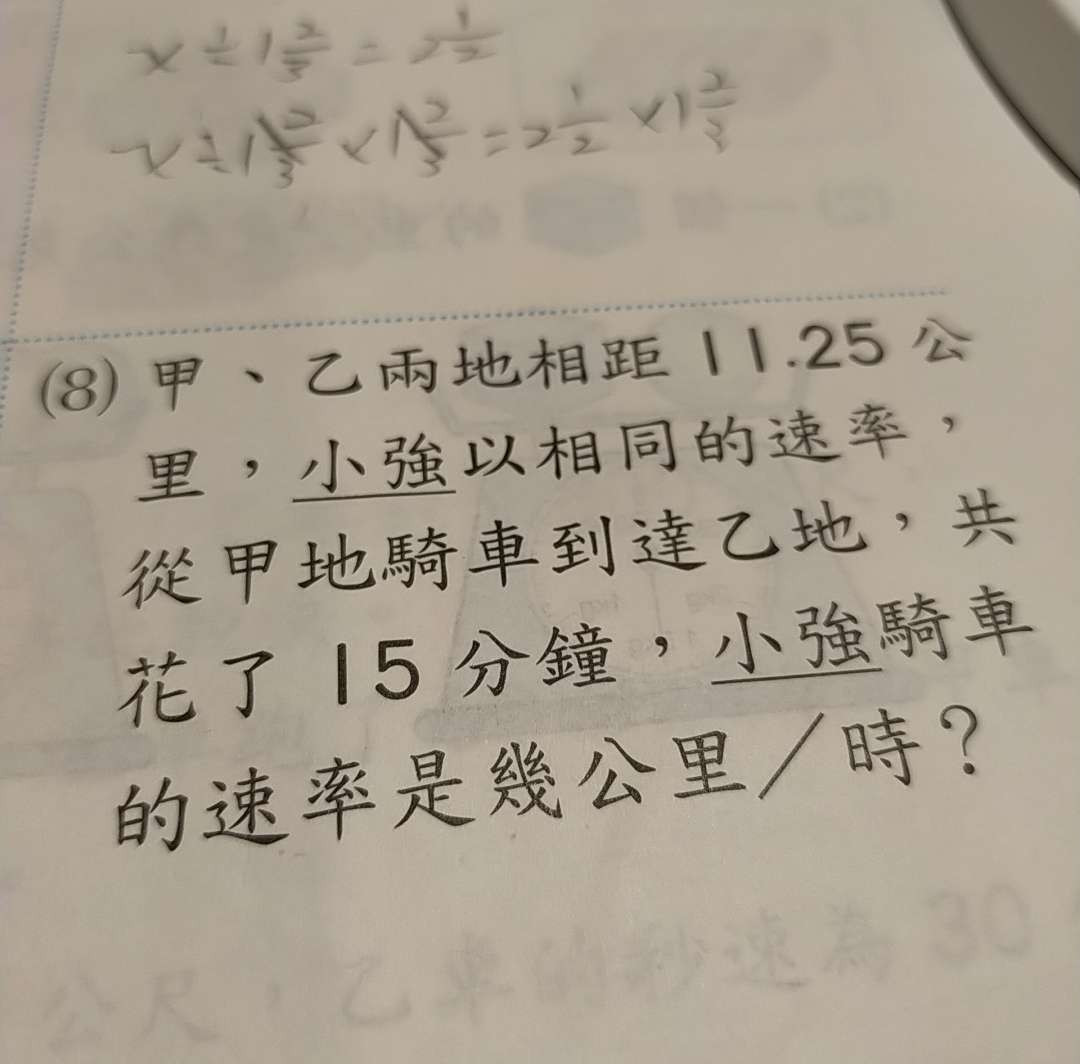 x÷1 2/3=2 1/2
x÷1 2/3×1 2/3=2 1/2×1 2/3
(8) 甲、乙兩地相距 11.25 公
里，小強以相同的速率，
從甲地騎車到達乙地，共
花了 15 分鐘，小強騎車
的速率是幾公里／時？
公尺，乙車的秒速為 30